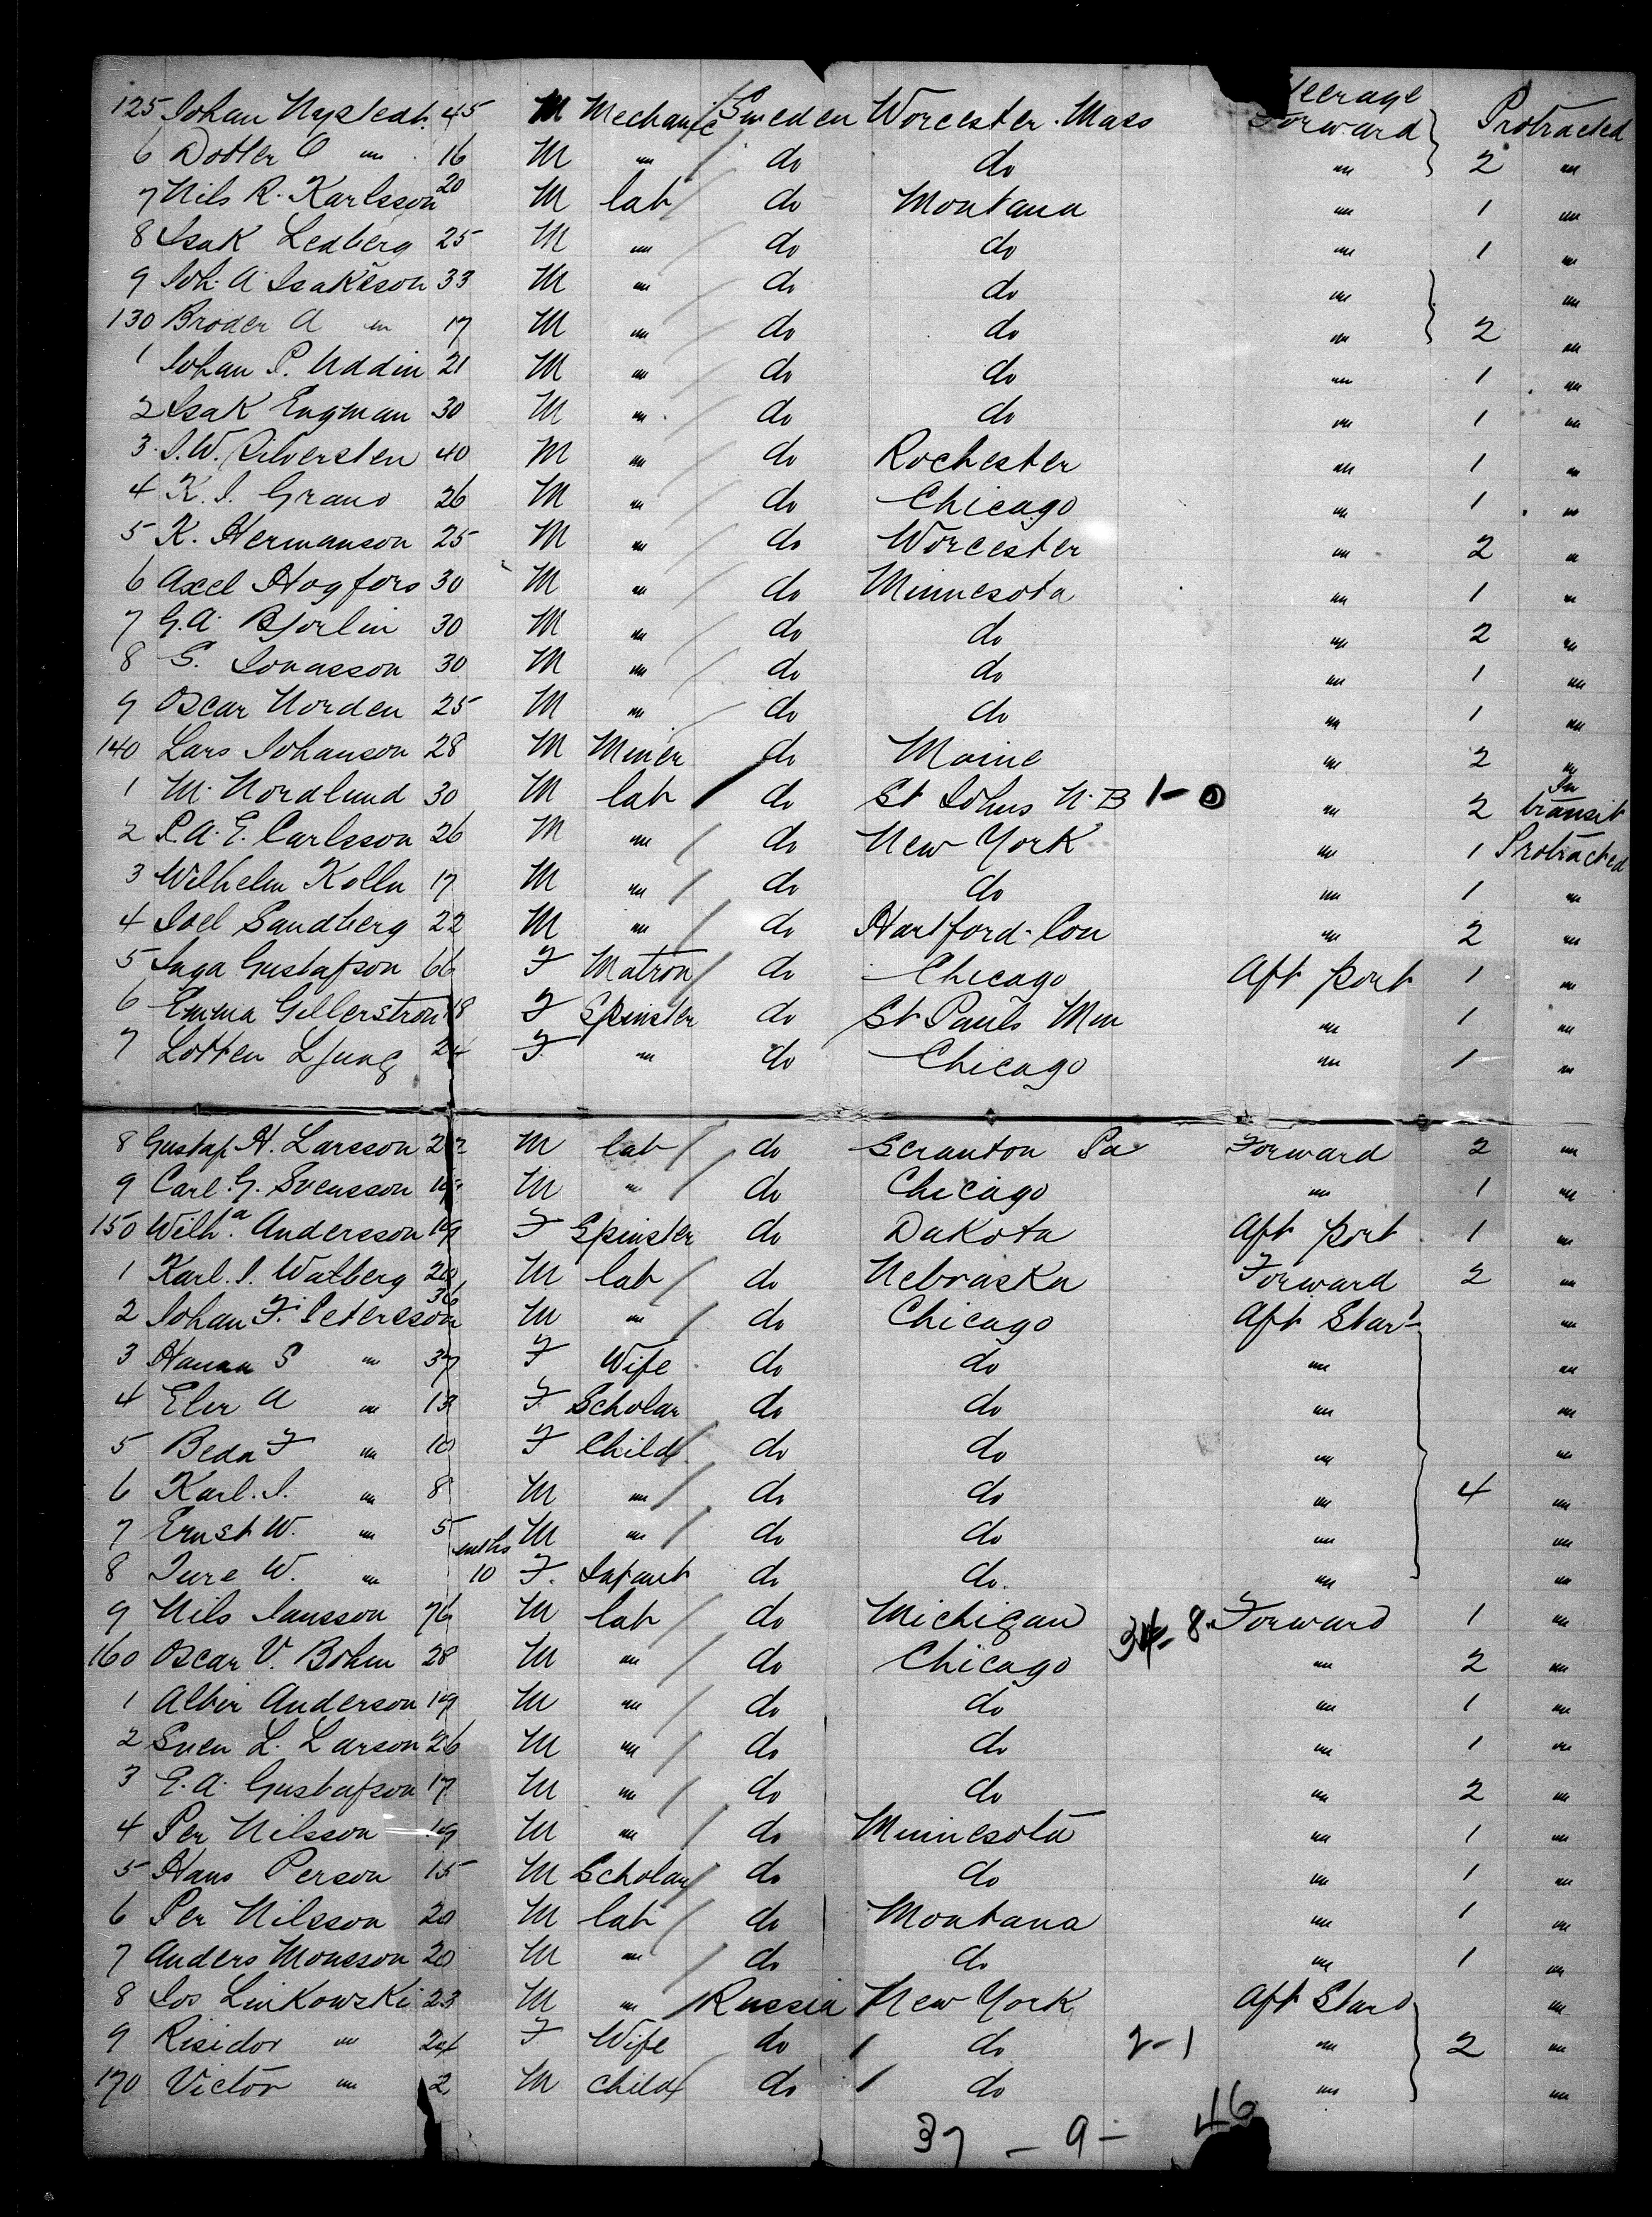 Steerage
125 Johan Nystedt. 45 M Mechanic Sweden Worcester. Mass Forward Protracted
6 Dotter C " 16 M " do do " 2 "
7 Nils R. Karlsson 20 M lab do Montana " 1 "
8 Isak Ledberg 25 M " do do " 1 "
9 Joh. A Isakeson 33 M " do do " "
130 Broder A " 17 M " do do " 2 "
1 Johan P. Uddin 21 M " do do " 1 "
2 Isak Engman 30 M " do do " 1 "
3. J.W. Silversten 40 M " do Rochester " 1 "
4 K. J. Grano 26 M " do Chicago " 1 "
5 K. Hermanson 25 M " do Worcester " 2 "
6 Axel Hogfors 30 M " do Minnesota " 1 "
7 G.A. Bjorlin 30 M " do do " 2 "
8 S. Jonasson 30 M " do do " 1 "
9 Oscar Norden 25 M " do do " 1 "
140 Lars Johanson 28 M Miner do Maine " 2 "
1 M. Nordlund 30 M lab do St Johns N.B 1-0 " 2 In transit
2 P.A.E. Carlsson 26 M " do New York " 1 Protracted
3 Wilhelm Kolln 17 M " do do " 1 "
4 Joel Sandberg 22 M " do Hartford-Con " 2 "
5 Inga Gustafson 66 F Matron do Chicago Aft port 1 "
6 Emma Gillerstrom 18 F Spinster do St Pauls Min " 1 "
7 Lotten Ljung 24 F " do Chicago " 1 "
8 Gustaf H. Larsson 22 M lab do Scranton Pa Forward 2 "
9 Carl. G. Svensson M " do Chicago " 1 "
150 Wilh.a Andersson 19 F Spinster do Dakota Aft port 1 "
1 Karl. J. Walberg 20 M lab do Nebraska Forward 2 "
2 Johan F. Petersson 36 M " do Chicago Aft Star "
3 Hanna S " 37 F Wife do do " "
4 Elin A " 13 F Scholar do do " "
5 Beda F " 10 F Child do do " "
6 Karl. J. " 8 M " do do " 4 "
7 Ernst W. " 5 M " do do " "
8 Ture W. " mths 10 F. Infant do do. " "
9 Nils Jansson 76 M lab do Michigan 34-8 Forward 1 "
160 Oscar V. Bohm 28 M " do Chicago " 2 "
1 Albin Anderson 19 M " do do " 1 "
2 Sven L. Larson 26 M " do do " 1 "
3 E. A. Gustafson 17 M " do do " 2 "
4 Per Nilsson 19 M " do Minnesota " 1 "
5 Hans Person 15 M Scholar do do " 1 "
6 Per Nilsson 20 M lab do Montana " 1 "
7 Anders Monsson 20 M " do do " 1 "
8 Jos Linkowski 23 M " Russia New York Aft Star "
9 Risidor " 24 F Wife do do 2-1 " 2 "
170 Victor " 2 M Child do do " "
37 - 9 - 46